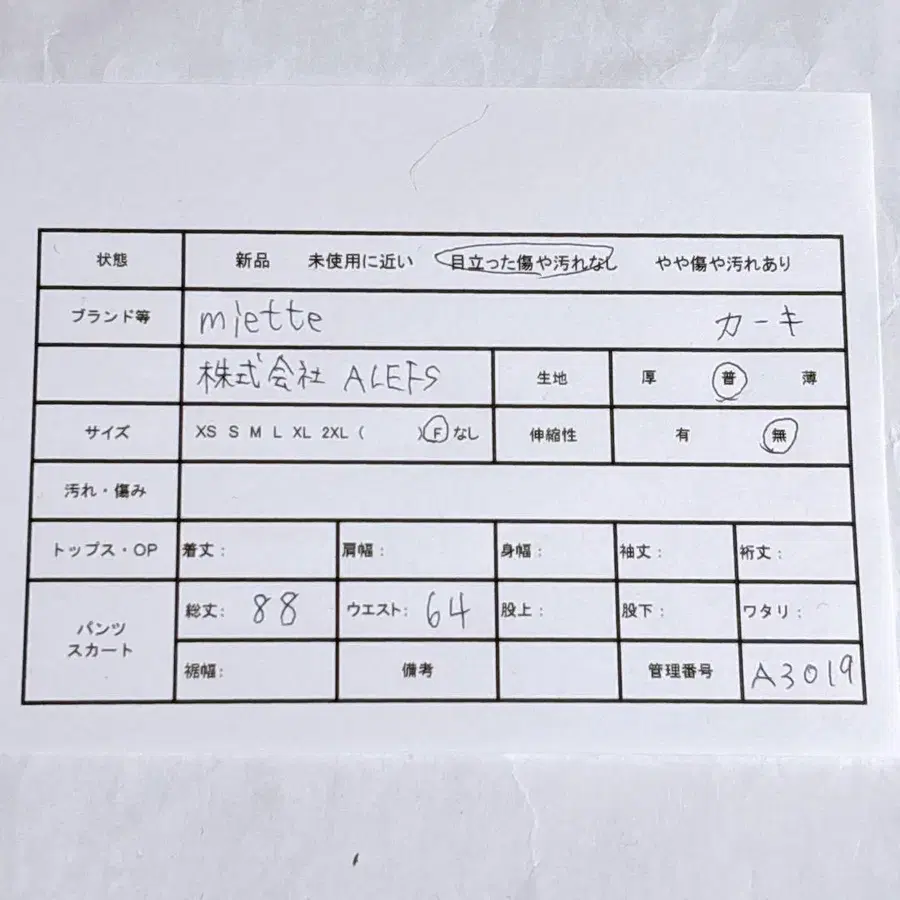 状態 新品 未使用に近い 目立った傷や汚れなし やや傷や汚れあり
ブランド等 miette カーキ
株式会社 ALEFS 生地 厚 普 薄
サイズ XS S M L XL 2XL ( )F なし 伸縮性 有 無
汚れ・傷み
トップス・OP 着丈: 肩幅: 身幅: 袖丈: 裄丈:
パンツ
スカート
総丈: 88 ウエスト: 64 股上: 股下: ワタリ:
裾幅: 備考 管理番号 A3019